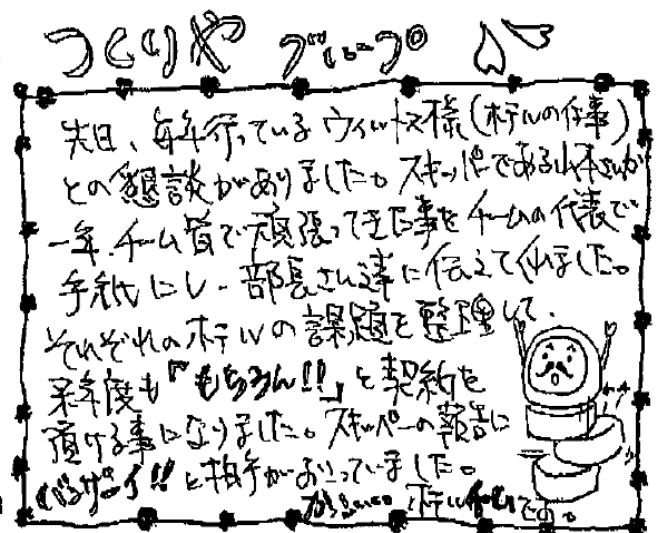 つくりや グループ
先日、毎年行っているウィットス様(ホテルの仕事)
との懇談がありました。スキッパーである山本さんが
一年、チーム皆で頑張ってきた事をチームの代表で
手紙にし、部長さん達に伝えてくれました。
それぞれのホテルの課題を整理して、
来年度も「もちろん!!」と契約を
頂ける事になりました。スキッパーの報告に
バンザーイ!!と拍手がおこっていました。
ホテル
です。